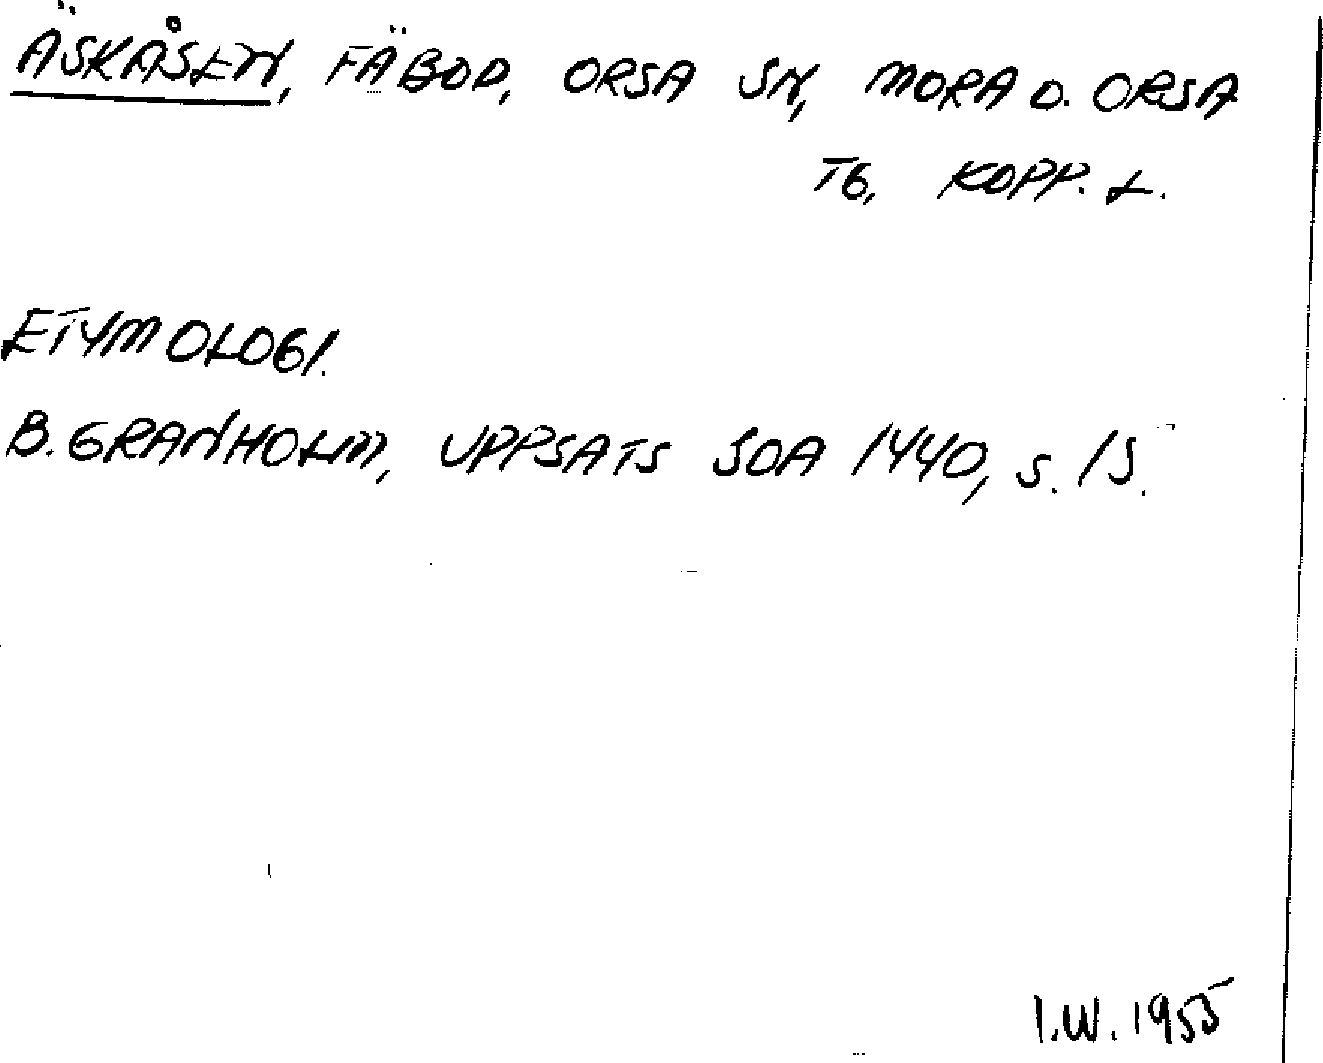 ÄSKÅSEN, FÄBOD, ORSA SN, MORA O. ORSA
TG, KOPP. L.
ETYMOLOGI.
B. GRANHOLM, UPPSATS SOA 1440, S. 15.
I.W. 1955